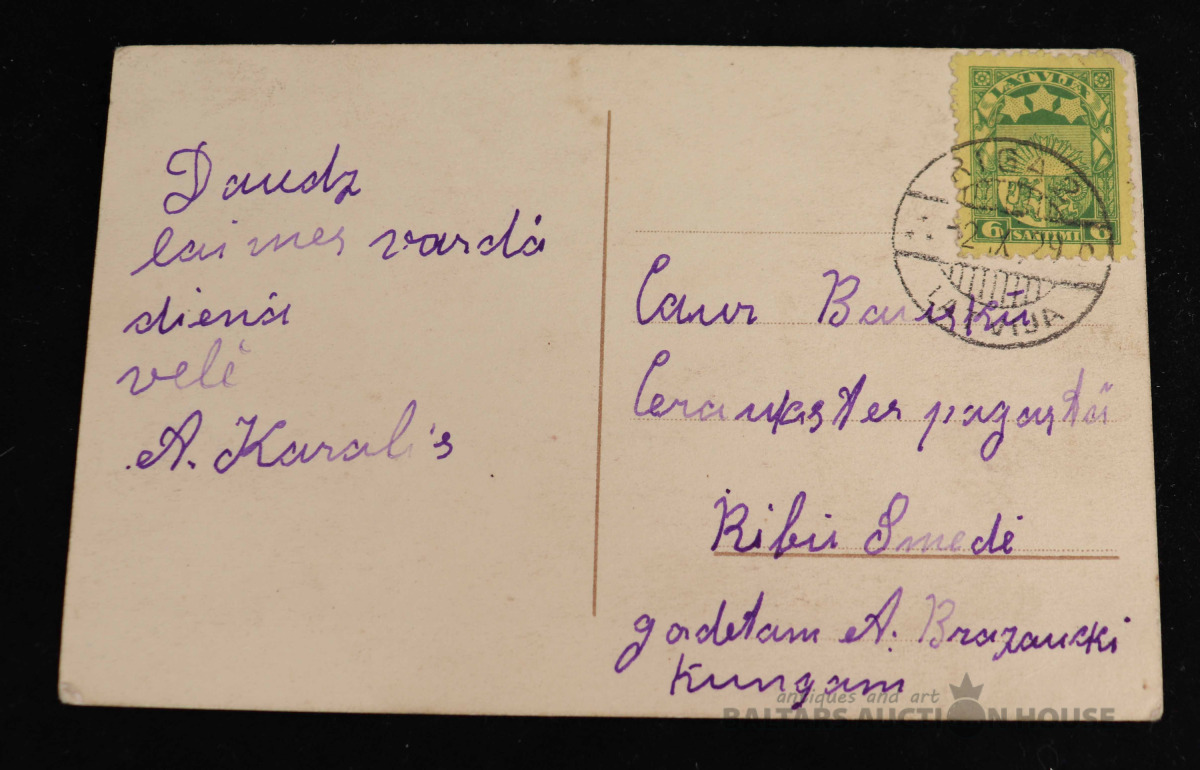 Daudz
laimes vardā
dienā
vēlē
A. Karalis
LATVIJA
6 SANTIMI 6
RIGA
LATVIJA
Caur Bausku
Ceraukstes pagastā
Ribu Smedē
godetam A. Brazaucki
Kungam
antiques and art
BALTARS AUCTION HOUSE